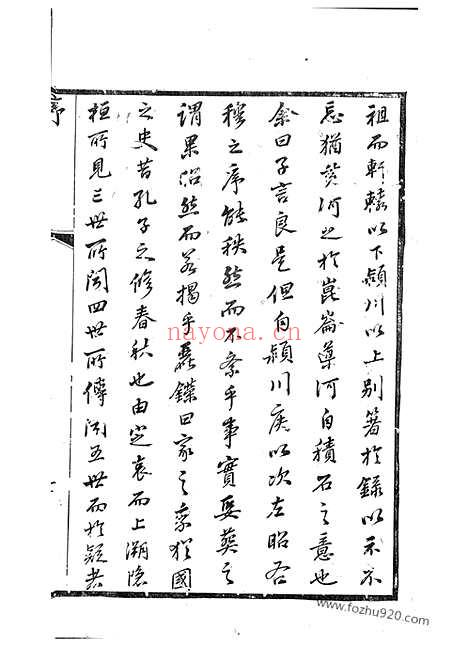 祖而軒轅以下潁川以上別箸於錄以示不
忘猶黃河之於崑崙導河自積石之意也
余曰子言良是但自潁川侯以次左昭右
穆之序能秩然而不紊乎事實墓葬之
謂果沿然而若揭乎聶鐷曰家之乘猶國
之史昔孔子之修春秋也由定哀而上溯隐
桓所見三世所聞四世所傳聞五世而於疑者
序
nayona.cn
www.fozhu920.com